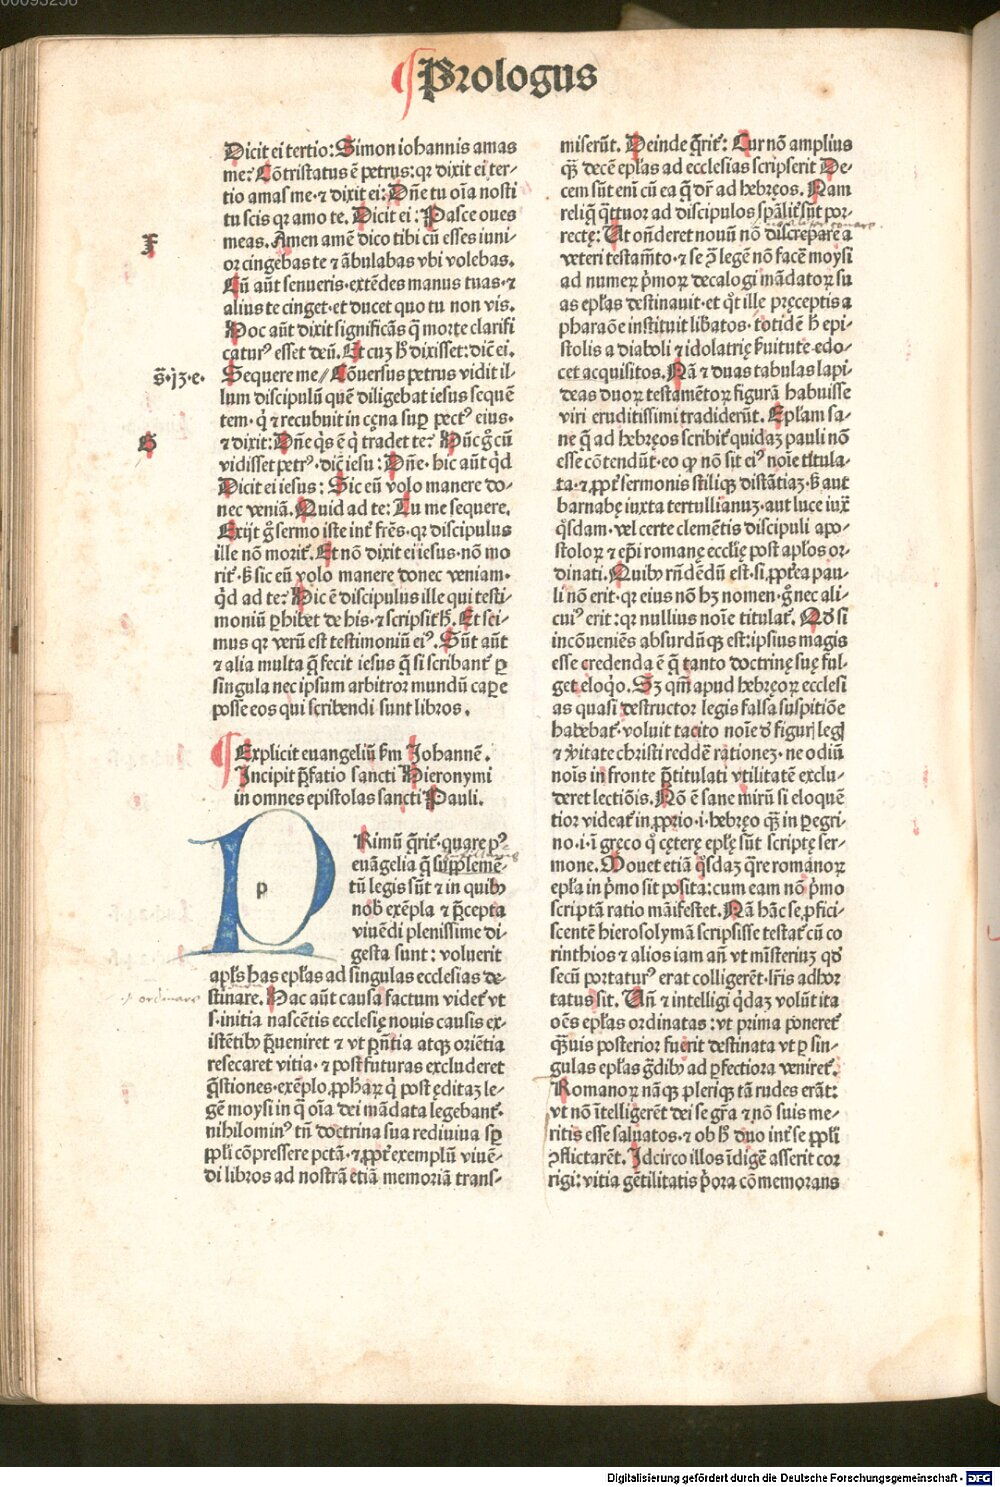 Prologus
Dicit ei tertio: Simon iohannis amas
me? Cōtristatus ē petrus: qꝛ dixit ei ter-
tio amas me. ⁊ dixit ei: Dn̄e tu oīa nosti
tu scis qꝛ amo te. Dicit ei: Pasce oues
meas. Amen amē dico tibi cū esses iuni-
F
or cingebas te ⁊ ābulabas vbi volebas.
Cū aūt senueris. extēdes manus tuas. ⁊
alius te cinget. et ducet quo tu non vis.
Hoc aūt dixit significās q̄ morte clarifi
caturꝰ esset deū. Et cuꝫ h̄ dixisset: dic̄ ei.
Sequere me // Cōuersus petrus vidit il-
s̄.j3.e.
lum discipulū quē diligebat iesus sequē
tem. q̇ ⁊ recubuit in cęna suꝑ pectꝰ eius.
⁊ dixit: Dn̄e q̄s ē q̇ tradet te? Hūc g̊ cū
G
vidisset petrꝰ. dic̄ iesu: Dn̄e. hic aūt qͥd
Dicit ei iesus: Sic eū volo manere do-
nec veniā. Quid ad te: Tu me sequere.
Exijt g̊ sermo iste int̄ fr̄es. qꝛ discipulus
ille nō morit̄. Et nō dixit ei iesus. nō mo
rit̄. s̄ sic eū volo manere donec veniam.
qͥd ad te? Hic ē discipulus ille qui testi-
moniū ꝑhibet de his. ⁊ scripsit h̄. Et sci-
mus qꝛ verū est testimoniū eiꝰ. Sūt aūt
⁊ alia multa q̄ fecit iesus q̄ si scribant̄ ꝑ
singula nec ipsum arbitror mundū caꝑe
posse eos qui scribendi sunt libros.
Explicit euangeliū s̄m Johannē.
Incipit p̄fatio sancti Hieronymi
in omnes epistolas sancti Pauli.
p
Rimū q̄rit̄. quare pꝰ
euāgelia q̄ supplemē-
tū legis sūt ⁊ in quibꝰ
nob̄ exēpla ⁊ p̄cepta
viuēdi plenissime di-
gesta sunt: voluerit
apl̄s has epl̄as ad singulas ecclesias de-
stinare. Hac aūt causa factum videt̄ vt
.i. ordinare
s. initia nascētis ecclesię nouis causis ex-
istētibꝰ p̄ueniret ⁊ vt p̄n̄tia atqꝫ oriētia
resecaret vitia. ⁊ post futuras excluderet
q̄stiones. exēplo ꝓphaꝝ q̇ post ęditaꝫ le-
gē moysi in q̄ oīa dei mādata legebant̄.
nihilominꝰ tn̄ doctrina sua rediuiua sꝑ
ppl̄i cōpressere pctā. ⁊ ꝓpt̄ exemplū viuē-
di libros ad nostrā etiā memoriā trans-
miserūt. Deinde q̄rit̄: Cur nō amplius
qꝫ decē epl̄as ad ecclesias scripserit De-
cem sūt eni cū ea q̄ dr̄ ad hebręos. Nam
reliq̄ q̄ttuor ad discipulos sp̄alit̄ sūt por-
rectę: Ut on̄deret nouū nō discrepare a
veteri testam̄to. ⁊ se ꝯ̄ legē nō facē moysi
ad numeꝝ p̄moꝝ decalogi mādatoꝝ su
as epl̄as destinauit. et qͦt ille pręceptis a
pharaōe instituit lib̄atos. totidē h̄ epi-
stolis a diaboli ⁊ idolatrię ẜuitute edo-
cet acquisitos. Nā ⁊ duas tabulas lapi
deas duoꝝ testamētoꝝ figurā habuisse
viri eruditissimi tradiderūt. Epl̄am sa-
ne q̄ ad hebręos scribit̄ quidaꝫ pauli nō
esse cōtendūt. eo ꝙ nō sit eiꝰ noīe titula-
ta. ⁊ ꝓpt̄ sermonis stiliqꝫ distātiaꝫ. s̄ aut
barnabę iuxta tertullianuꝫ. aut luce iux̄
q̄sdam. vel certe clemētis discipuli apo-
stoloꝝ ⁊ ep̄i romanę eccl̄ię post apl̄os or-
dinati. Quibꝰ rn̄dēdū est. si ꝓpt̄ea pau-
li nō erit. qꝛ eius nō hꝫ nomen. g̊ nec ali-
cuiꝰ erit: qꝛ nullius noīe titulat̄. Qd̄ si
incōueniēs absurdūqꝫ est: ipsius magis
esse credenda ē q̄ tanto doctrinę suę ful-
get eloq̇o. Sꝫ qm̄ apud hebręoꝝ ecclesi
as quasi destructor legis falsa suspitiōe
habebat̄. voluit tacito noīe de figuꝝ legꝭ
⁊ v̄itate christi reddē rationeꝫ. ne odiū
noīs in fronte p̄titulati vtilitatē exclu-
deret lectiōis. Nō ē sane mirū si eloquē
tior videat̄ in ꝓprio. i. hebręo qꝫ in ꝑegri-
no. i. ī gręco q̊ cęterę epl̄ę sūt scriptę ser-
mone. Mouet etiā q̄sdaꝫ q̄re romanoꝝ
epl̄a in p̄mo sit posita: cum eam nō p̄mo
scriptā ratio māifestet. Nā hāc se ꝓfici-
scentē hierosolymā scripsisse testat̄ cū co
rinthios ⁊ alios iam an̄ vt mīsteriuꝫ qd̄
secū portaturꝰ erat colligerēt. lr̄is adhor
tatus sit. Un̄ ⁊ intelligi q̇daꝫ volūt ita
oēs epl̄as ordinatas: vt prima poneret̄
q̄uis posterior fuerit destinata vt ꝑ sin-
gulas epl̄as g̊dibꝰ ad ꝑfectiora veniret̄.
Romanoꝝ nāqꝫ pleriqꝫ tā rudes erāt:
vt nō ītelligerēt dei se gr̄a ⁊ nō suis me-
ritis esse saluatos. ⁊ ob h̄ duo int̄ se ppl̄i
ꝯflictarēt. Idcirco illos īdigē asserit cor
rigi: vitia gētilitatis p̄ora cōmemorans
Digitalisierung gefördert durch die Deutsche Forschungsgemeinschaft - DFG